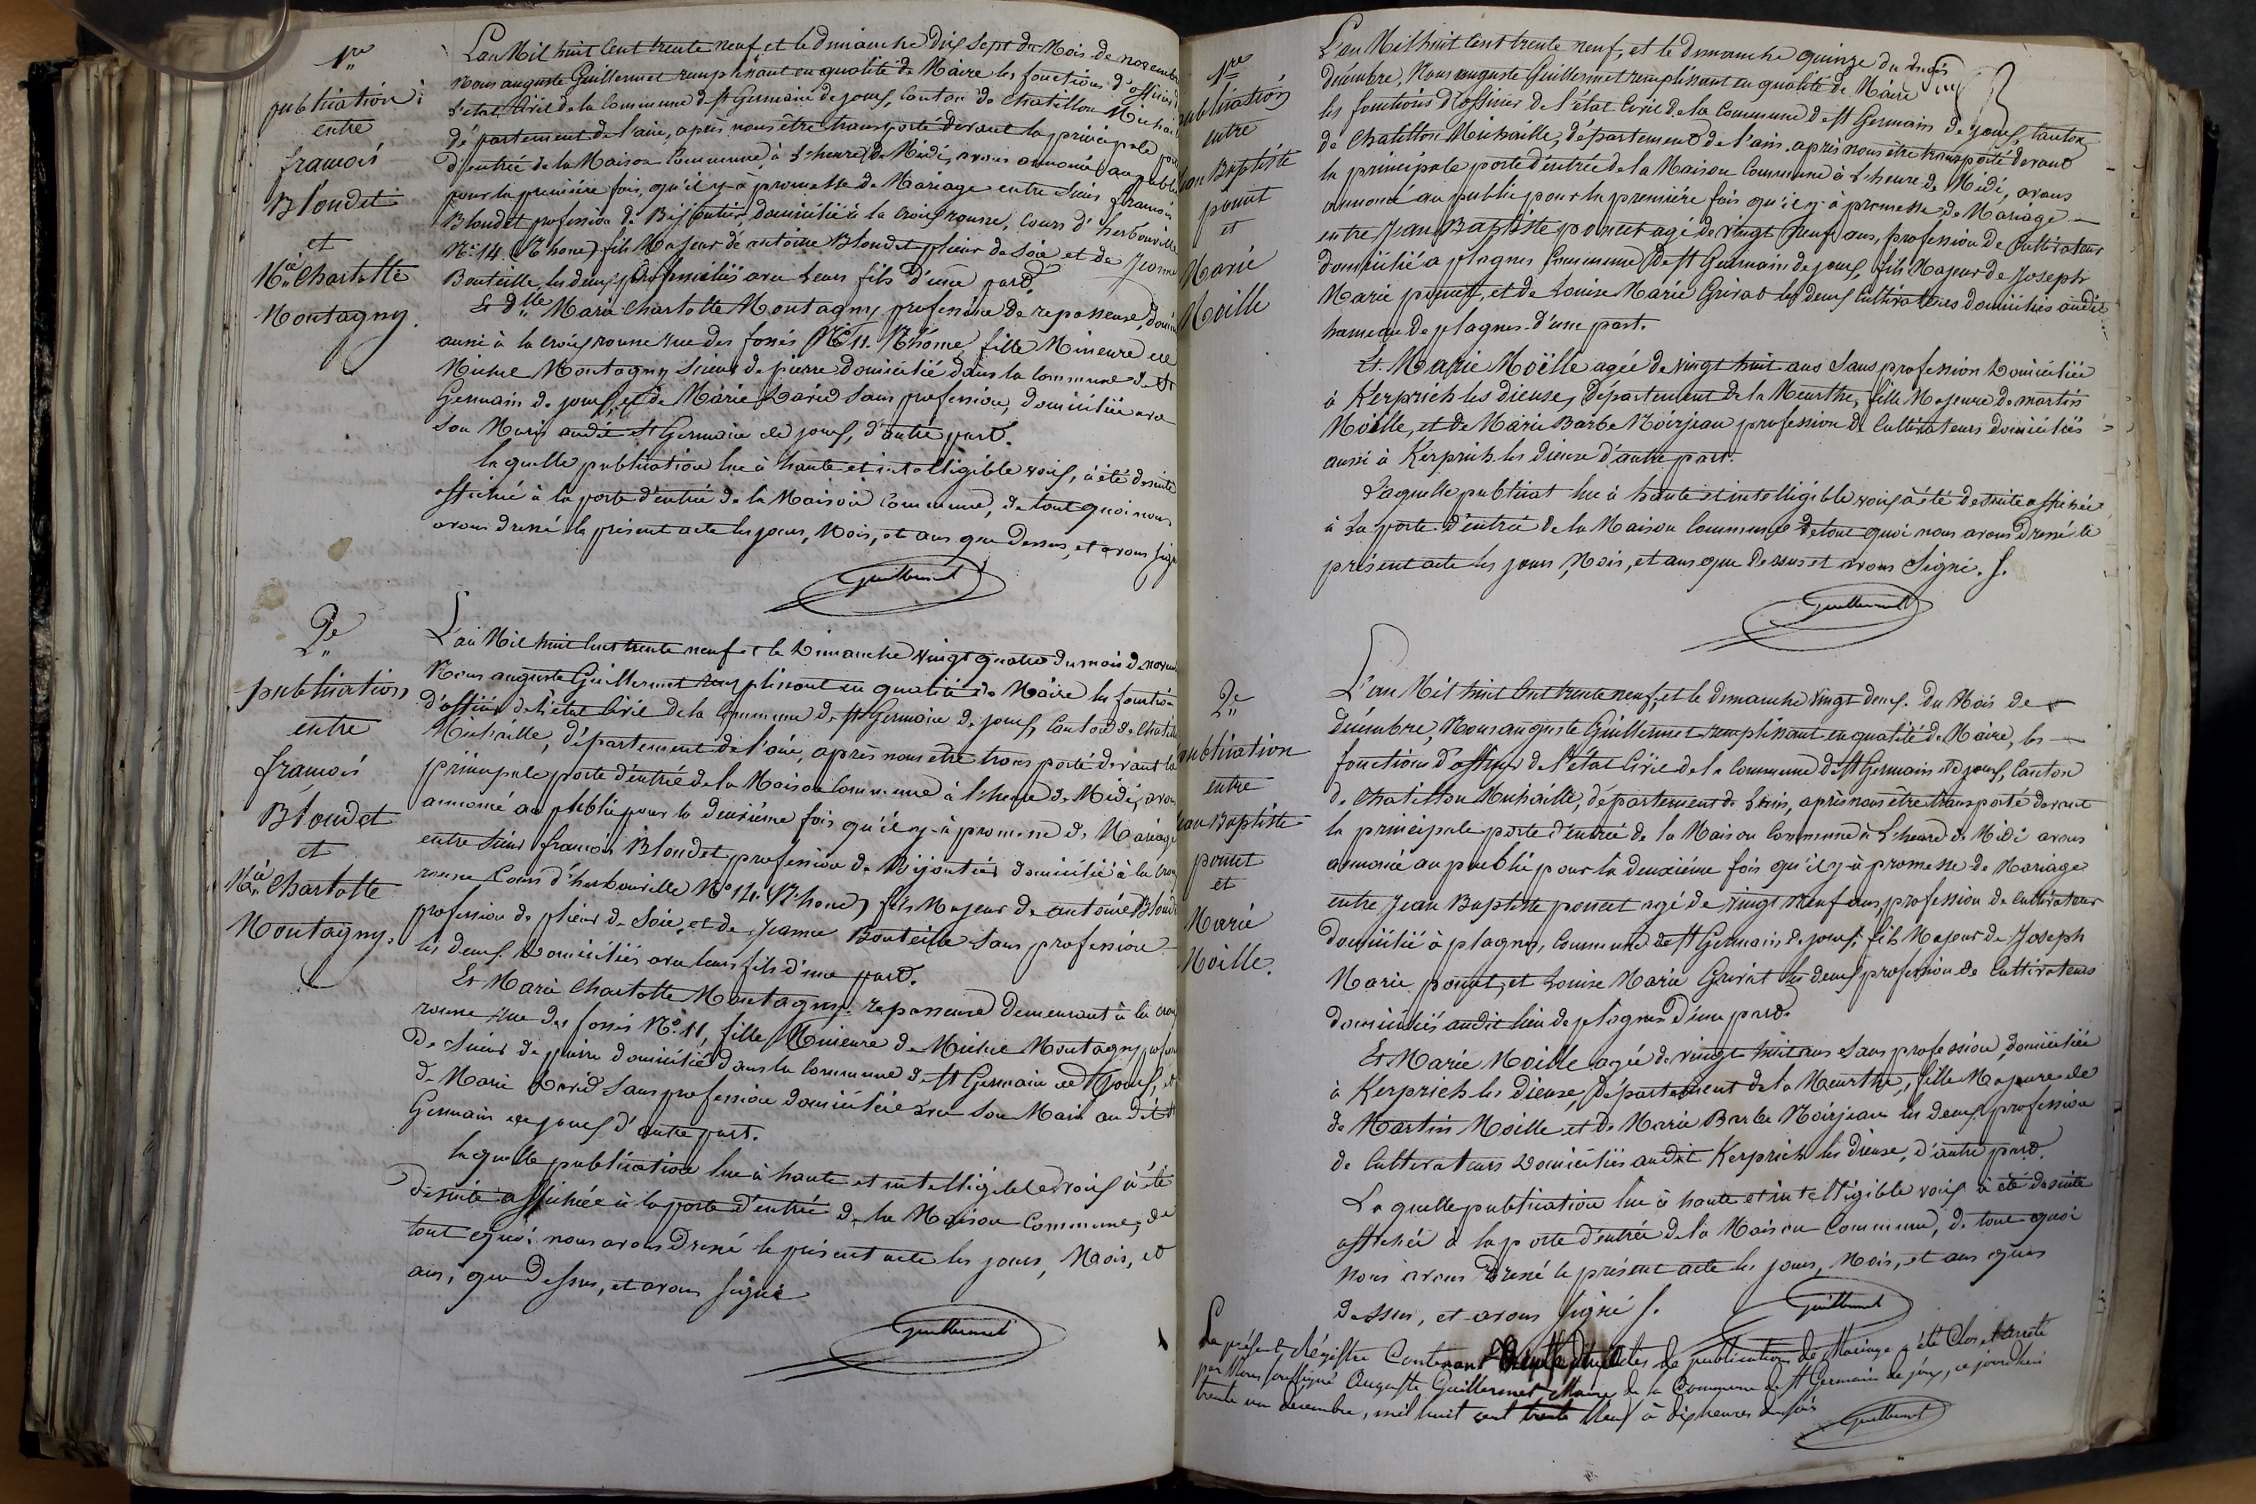 1re
publication
entre
francois
Bloudet
et
Mia Charlotte
Montagny.
L'an Mil huit Cent trente neuf et le dimanche dix sept du Mois de novembre
Nous auguste Guillermet remplissant en qualité de Maire les fonctions d'officier
l'etat Civil de la Commune de st Germain de joux, Canton de Chatillon Michaille
département de l'ain, après nous être transporté devant la principale porte
d'entrée de la Maison Commune, à l'heure de Midi, avons annoncé au public
pour la première fois, qu'il y à promesse de Mariage entre sieur francois
Bloudet profession de Bijoutier domicilié à la Croix rousse, Cours d'herbouville
No 14. (Rhone) fils Majeur de antoine Bloudet plieur de Soie et de Jeanne
Bouteille, les deux domiciliés avec Leurs fils d'une part.
Et dlle Marie Charlotte Montagny profession de repasseuse, domici
aussi à la Croix rousse rue des fossés No 11. Rhône, fille Mineure de
Michel Montagny Scieur de pierre domicilié dans la Commune de St
Germain de joux, et de Marie David sans profession, domiciliée avec
son Mari audit st Germain de joux, d'autre part.
laquelle publication lue à haute et intelligible voix, à été desuite
affichée à la porte d'entrée de la Maison Commune, de tout quoi nous
avons dressé le présent acte les jours, Mois, et ans que dessus, et avons signé
Guillermet
2e
publication
entre
francois
Bloudet
et
Mia Charlotte
Montagny.
L'an Mil huit Cent trente neuf et le Dimanche vingt quatre du mois de novem
Nous auguste Guillermet remplissant en qualité de Maire les fonctions
d'officier de l'état Civil de la Commune de st Germain de joux, Canton de Chatillon
Michaille, département de l'ain, après nous être transporté devant la
principale porte d'entrée de la Maison Commune à l'heure de Midi, avons
annoncé au public pour la deuxième fois qu'il y à promesse de Mariage
entre sieur francois Bloudet profession de Bijoutier domicilié à la Croix
rousse Cours d'herbouville No 14. (Rhone) fils Majeur de antoine Bloudet
profession de plieur de Soie, et de Jeanne Bouteille sans profession
les deux Domiciliés avec leurs fils d'une part.
Et Marie Charlotte Montagny repasseuse demeurant à la Croix
rousse rue des fossés No 11, fille Mineure de Michel Montagny profession
de scieur de pierre domicilié dans la Commune de st Germain de joux, et
de Marie David sans profession domiciliée avec son Mari audit st
Germain de joux d'autre part.
laquelle publication lue à haute et intelligible voix à été
desuite affichée à la porte d'entrée de la Maison Commune, de
tout quoi nous avons dressé le présent acte les jours, Mois, et
ans, que dessus, et avons signé
Guillermet
1re
publication
entre
Jean Baptiste
poncet
et
Marie
Moille
L'an Mil huit Cent trente neuf, et le dimanche quinze du Mois
décembre, Nous auguste Guillermet remplissant en qualité de Maire
les fonctions d'officier de l'état Civil de la Commune de st Germain de joux, Canton
de Chatillon Michaille, département de l'ain, après nous être transporté devant
la principale porte d'entrée de la Maison Commune à l'heure de Midi, avons
annoncé au public pour la première fois qu'il y à promesse de Mariage
entre Jean Baptiste poncet agé de vingt Neuf ans, profession de Cultivateur
domicilié a plagnes Commune de st Germain de joux, fils Majeur de Joseph
Marie poncet, et de Louise Marie Grivat les deux Cultivateurs domiciliés audit
hameau de plagnes d'une part.
Et Marie Moëlle agée de vingt huit ans Sans profession Domiciliée
à Kerprich les dieuse, département de la Meurthe, fille Majeure de martin
Moille, et de Marie Barbe Noirjean profession de Cultivateurs domiciliés
aussi à Kerprich les dieuse d'autre part.
Laquelle publicat lue à haute et intelligible voix à été desuite affichée
à La porte d'entrée de la Maison Commune de tout quoi nous avons dressé le
présent acte les jours, Mois, et ans que dessus et avons Signé.
Guillermet
2e
publication
entre
Jean Baptiste
poncet
et
Marie
Moille.
L'an Mil huit Cent trente neuf, et le dimanche vingt deux du Mois de
décembre, Nous auguste Guillermet remplissant en qualité de Maire, les
fonctions d'officier de l'état Civil de la Commune de st Germain de joux, Canton
de Chatillon Michaille, département de L'ain, après nous être transporté devant
la principale porte d'entrée de la Maison Commune à L'heure de Midi avons
annoncé au public pour la deuxième fois qu'il y à promesse de Mariage
entre Jean Baptiste poncet agé de vingt Neuf ans, profession de Cultivateur
domicilié à plagnes, Commune de st Germain de joux, fils Majeur de Joseph
Marie poncet, et Louise Marie Grivat les deux profession de Cultivateurs
domiciliés audit lieu de plagnes d'une part.
Et Marie Moille agée de vingt huit ans Sans profession, domiciliée
à Kerprich les Dieuse, département de la Meurthe, fille Majeure de
de Martin Moille et de Marie Barbe Noirjean les deux profession
de Cultivateurs Domiciliés audit Kerprich les Dieuse, d'autre part.
Laquelle publication lue à haute et intelligible voix à été desuite
affichée à la porte d'entrée de la Maison Commune, de tout quoi
Nous avons dressé le présent acte les jours, Mois, et ans que
dessus, et avons signé
Guillermet
Le présent Régistre Contenant actes de publications de Mariage a été Clos et arrêté
par Nous soussigné Auguste Guillermet, Maire de la Commune de St Germain de joux, ce jourd'hui
trente un décembre, mil huit cent trente Neuf à dix heures du soir
Guillermet